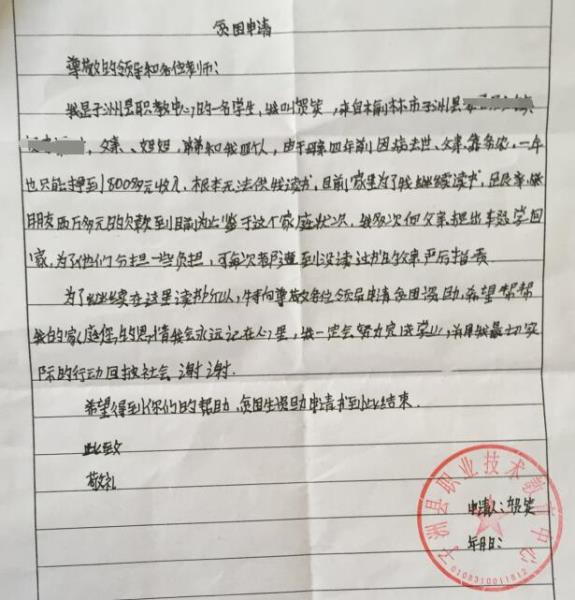 贫困申请
尊敬的领导和各位老师:
我是子洲县职教中心的一名学生,我叫贺笑,来自榆林市子洲县
父亲、姐姐、弟弟和我四个人,由于母亲四年前因病去世,父亲靠务农,一年
也只能挣到1800多元收入,根本无法供我读书,目前家里为了我继续读书,已
朋友两万多元的欠款到目前为止鉴于这个家庭状次,我多次向父亲提出车效学回
家,为了他们分担一些负担,可每次都遭到没读过书的父亲严厉指责
为了继续在这里读书所以,特向尊敬各位领导申请贫困资助,希望帮帮
我的家庭您的恩情我会永远记在心里,我一定会努力完成学业,并用我最切实
际的行动回报社会,谢谢.
希望得到你们的帮助,贫困生资助申请书到此结束.
此致
敬礼
申请人:贺笑
年月日:
子洲县职业技术教育中心
0108310011812